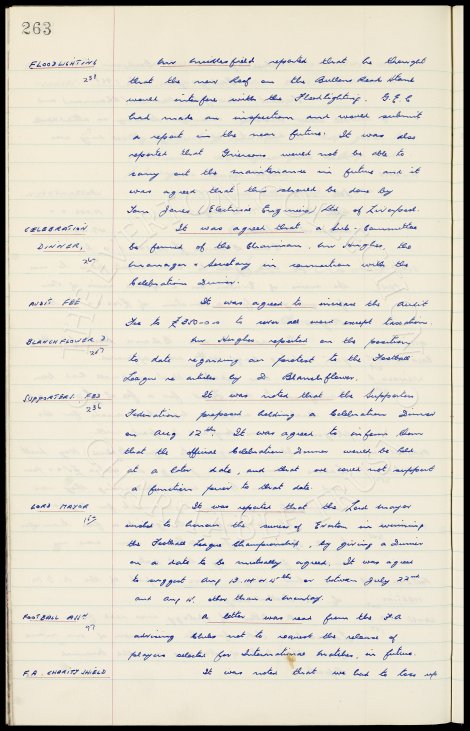 263
FLOODLIGHTING Mr Micklesfield reported that he thought
238 that the new Roof on the Bullens Road Stand
would interfere with the Floodlighting. G.E.C
had made an inspection and would submit
a report in the near future. It was also
reported that Griersons would not be able to
carry out the maintenance in future and it
was agreed that this should be done by
Tom Jones (Electrical Engineers) Ltd of Liverpool.
CELEBRATION It was agreed that a Sub-Committee
DINNER, be formed of the Chairman, Mr Hughes, the
Manager & Secretary in connection with the
Celebration Dinner.
AUDIT FEE It was agreed to increase the Audit
Fee to £250-0-0 to cover all work except taxation.
BLANCHFLOWER D Mr Hughes reported on the position
257 to date regarding our protest to the Football
League re articles by D. Blanchflower.
SUPPORTERS FED It was noted that the Supporters
236 Federation proposed holding a Celebration Dinner
on Aug 12th. It was agreed to inform them
that the official Celebration Dinner would be held
at a later date, and that we could not support
a function prior to that date.
LORD MAYOR It was reported that the Lord Mayor
wished to honour the success of Everton in winning
the Football League Championship, by giving a Dinner
on a date to be mutually agreed. It was agreed
to suggest Aug 13, 14 or 15th or between July 22nd
and Aug other than a Monday.
FOOTBALL ASSN A letter was read from the F.A
97 advising Clubs not to request the release of
players selected for International Matches, in future.
F.A. CHARITY SHIELD It was noted that we had to toss up